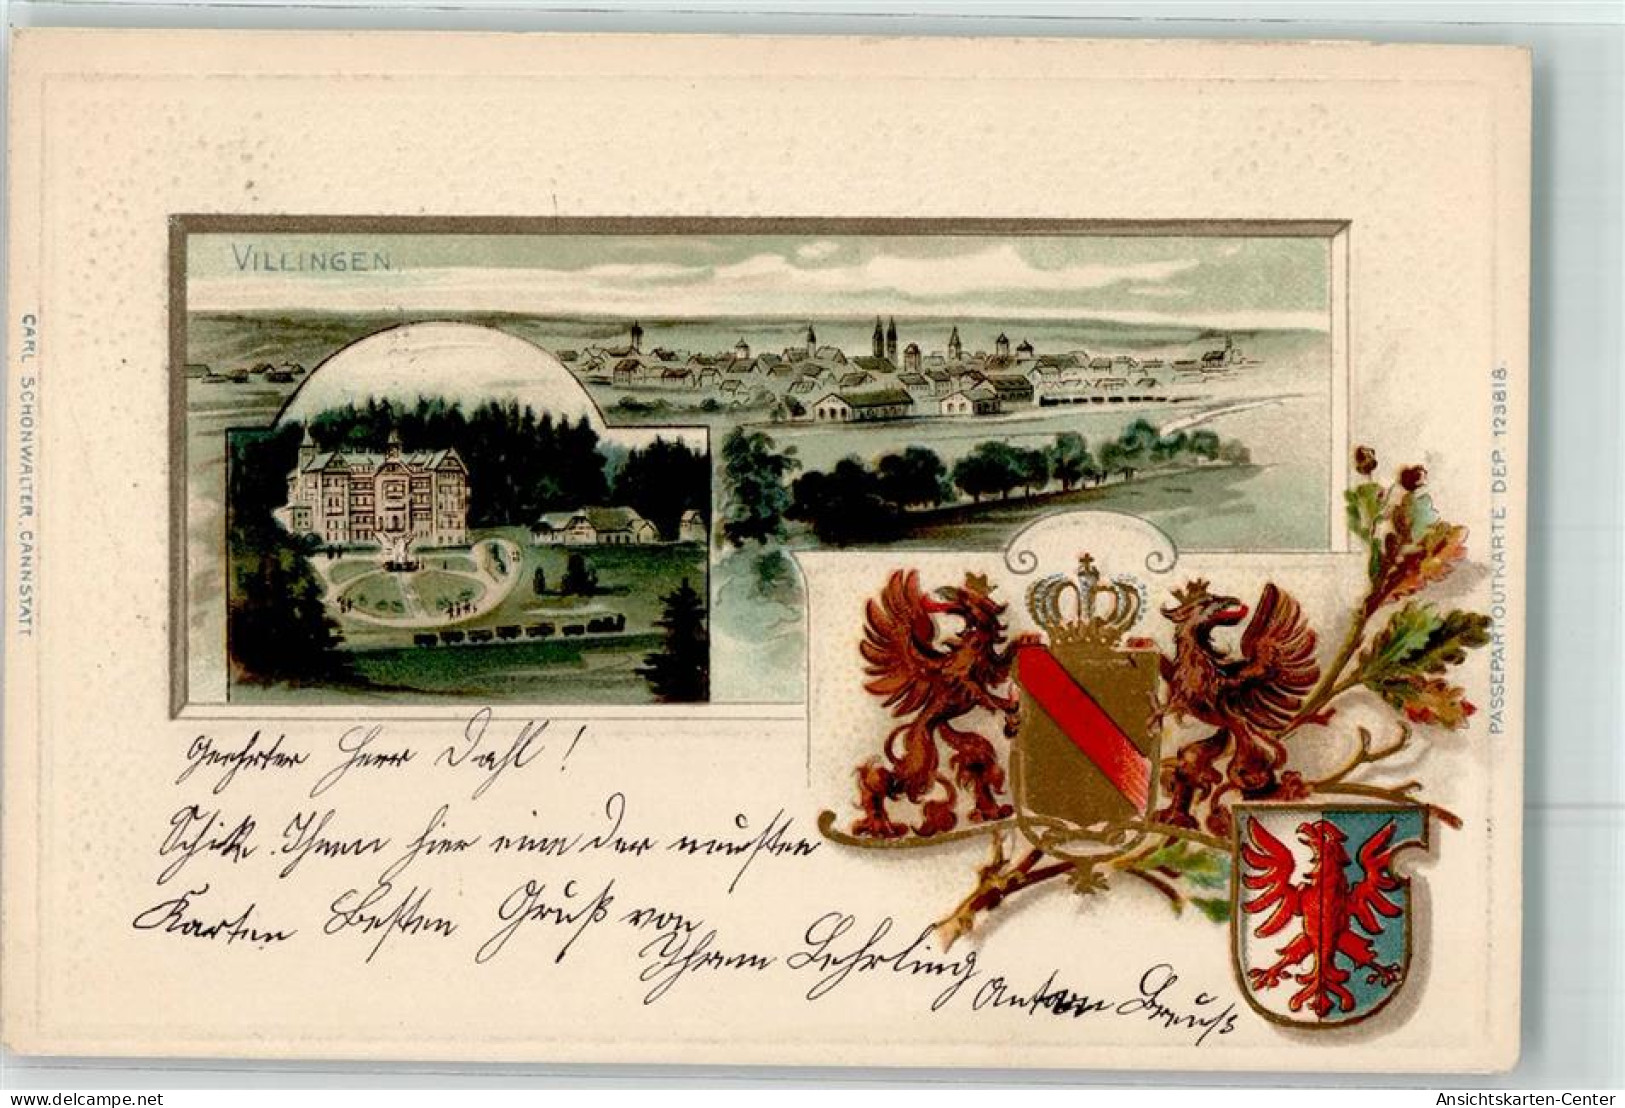 VILLINGEN.
CARL SCHÖNWALTER, CANNSTATT
PASSEPARTOUTKARTE DEP. 123818.
Geehrter Herr Dahl!
Schicke Ihnen hier eine der neusten
Karten Besten Gruß von
Ihrem Lehrling
Anton Breuß
delcampe.net
Ansichtskarten-Center